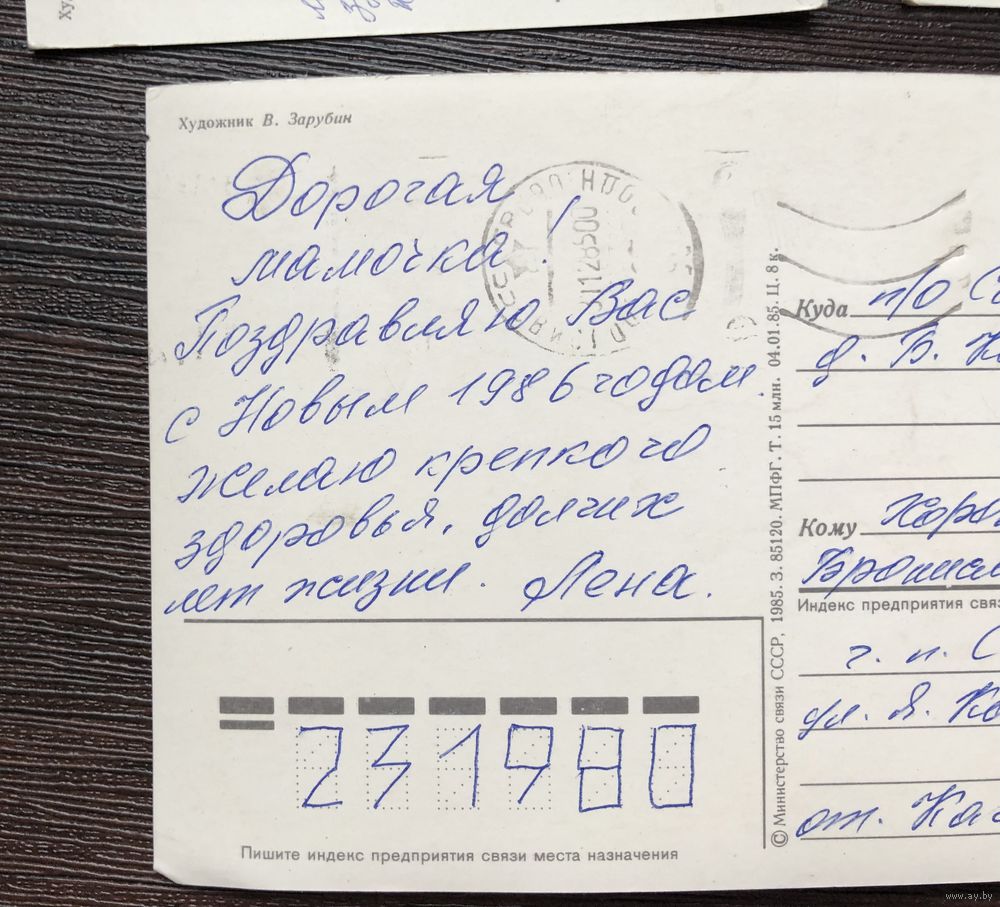 Художник В. Зарубин
Дорогая
мамочка!
Поздравляю Вас
с Новым 1986 годом.
желаю крепкого
здоровья, долгих
лет жизни. Лена.
231980
Пишите индекс предприятия связи места назначения
© Министерство связи СССР, 1985. З. 85120. МПФГ. Т. 15 млн. 04.01.85. Ц. 8 к.
Куда п/о
д. В.
Кому
Индекс предприятия связ
г. п. С
ул. Я.
от.
www.ay.by